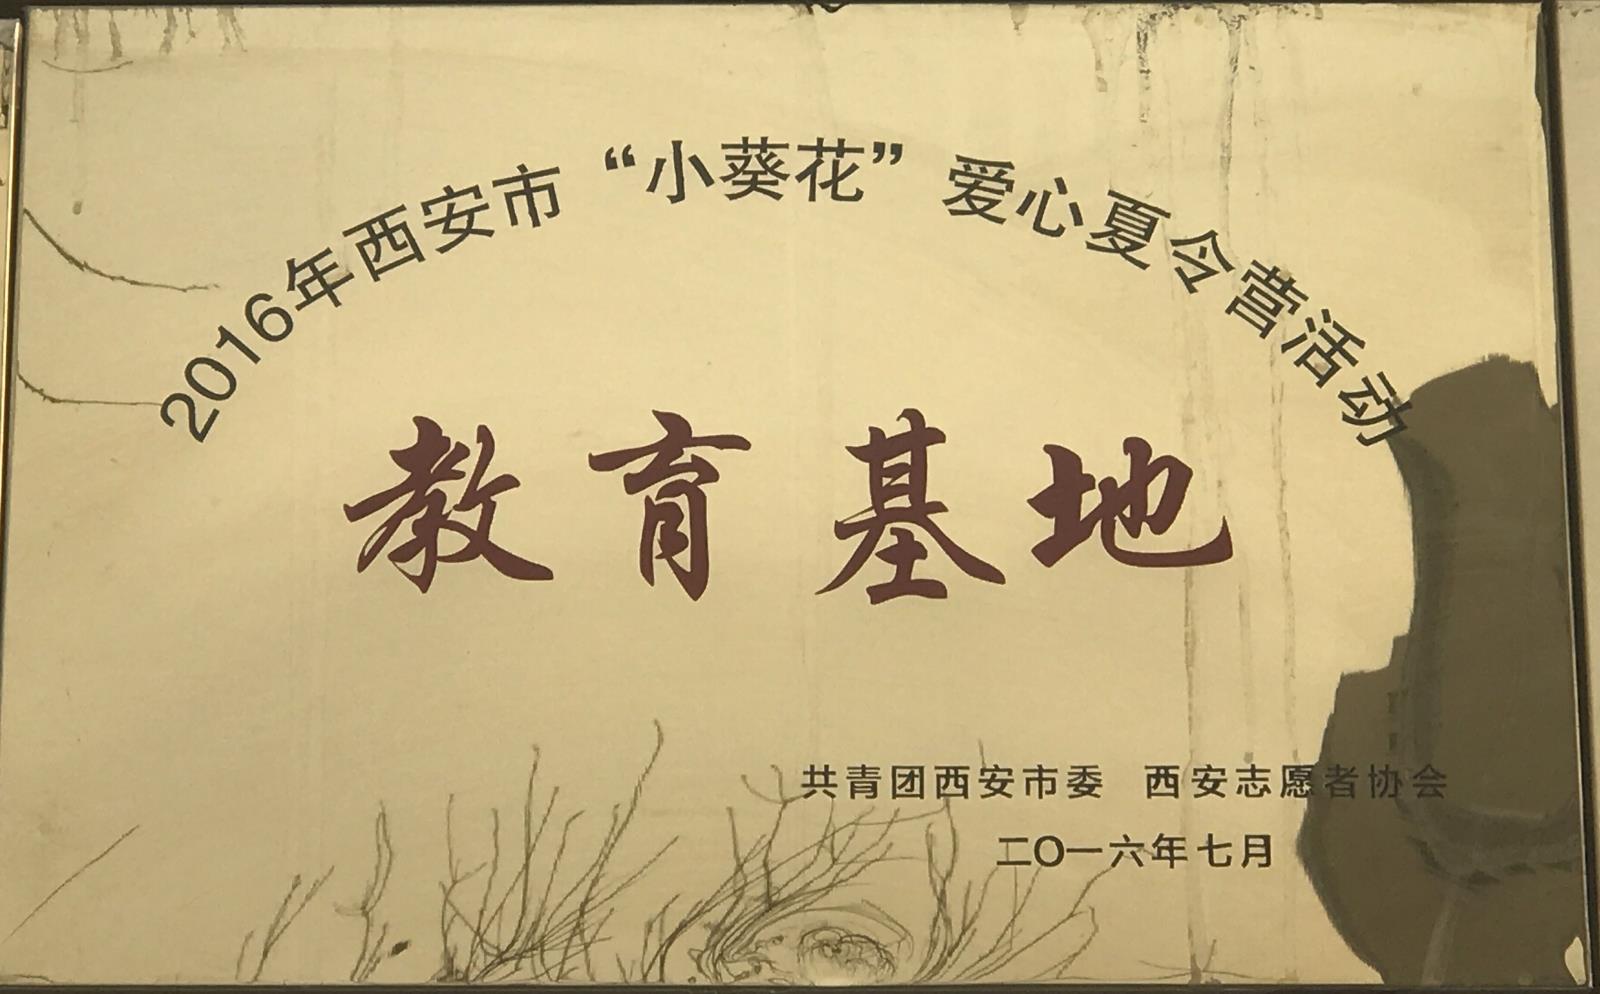 2016年西安市“小葵花”爱心夏令营活动
教育基地
共青团西安市委 西安志愿者协会
二〇一六年七月